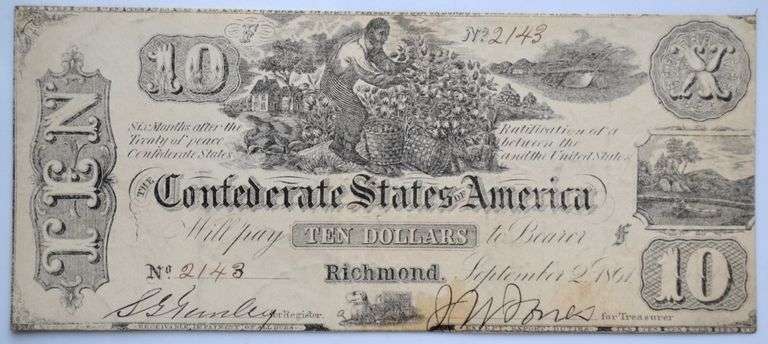 10
F
No. 2143
X
TEN
Six Months after the Ratification of a
Treaty of peace between the
Confederate States and the United States
THE Confederate States OF America
Will pay TEN DOLLARS to Bearer
F
No. 2143 Richmond, September 2d 1861
10
for Register. for Treasurer
RECEIVABLE IN PAYMENT OF ALL DUES EXCEPT EXPORT DUTIES